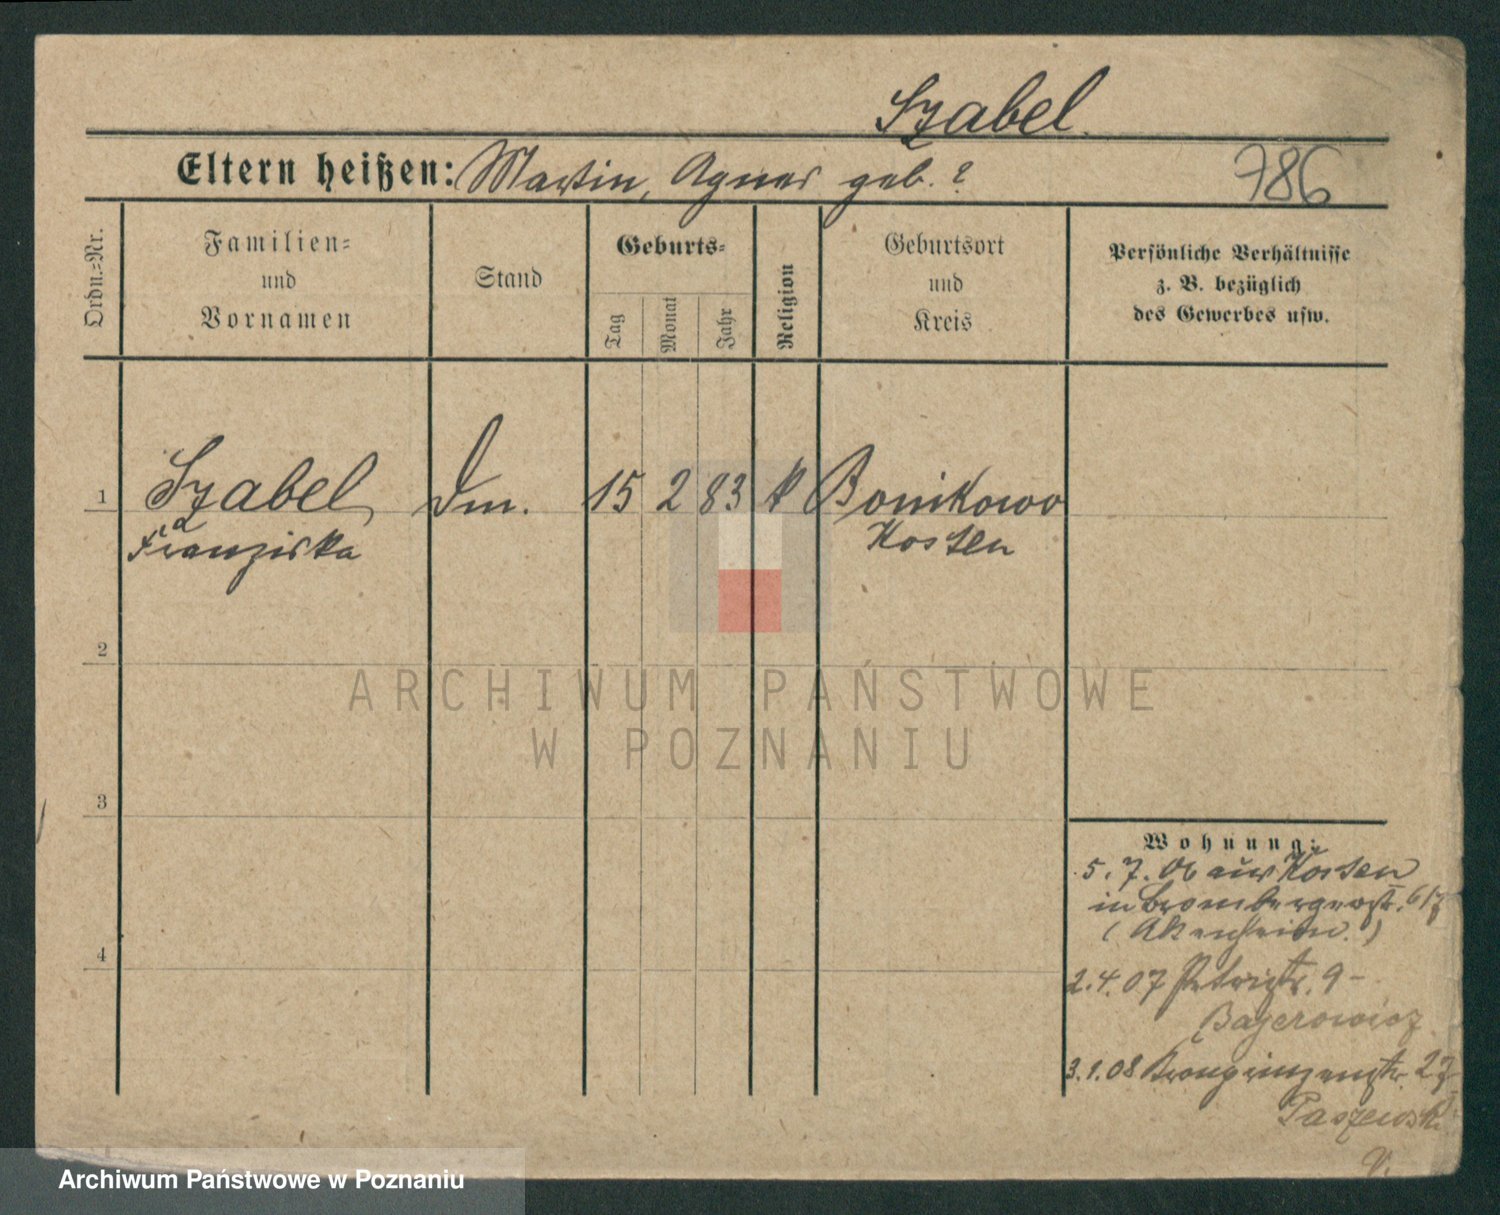 Szabel.
Eltern heißen: Martin, Agnes geb. ?
786
Ordn.=Nr.
Familien=
und
Vornamen
Stand
Geburts=
Tag
Monat
Jahr
Religion
Geburtsort
und
Kreis
Persönliche Verhältnisse
z. B. bezüglich
des Gewerbes usw.
1 Szabel Dm. 15 2 83 k Bonikowo
Franziska Kosten
2
ARCHIWUM PAŃSTWOWE
W POZNANIU
3
4
Wohnung:
5. 7. 06 aus Kosten
in Brombergerstr.
2.4.07 Petristr. 9 -
Bajerowicz
3.1.08 Kronprinzenstr. 27
Paszewski
Archiwum Państwowe w Poznaniu